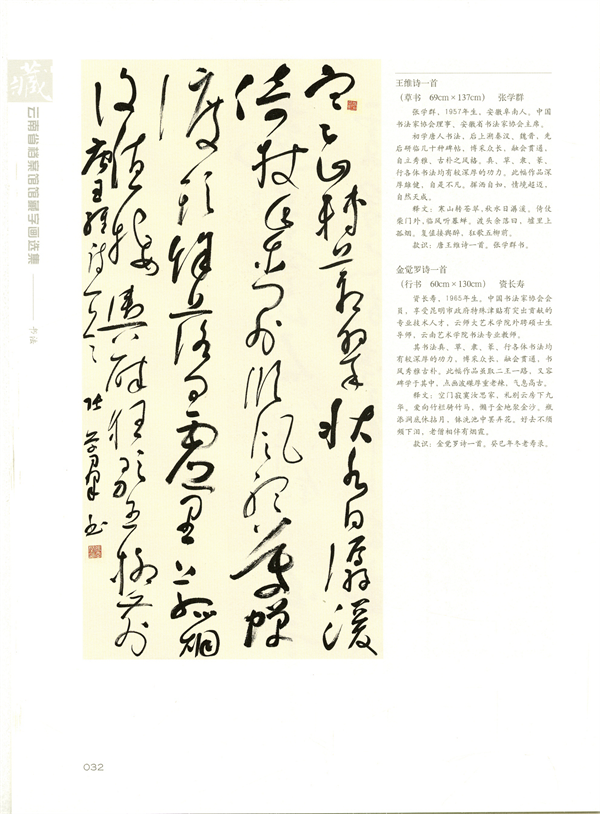 藏
云南省档案馆馆藏字画选集
书法
寒山轉蒼翠秋水日潺湲
倚杖柴門外臨風聽暮蟬
渡頭餘落日墟里上孤烟
復值接輿醉狂歌五柳前
唐王維詩一首 張學群書
王维诗一首
（草书 69cm×137cm） 张学群
张学群，1957年生，安徽阜南人，中国
书法家协会理事、安徽省书法家协会主席。
初学唐人书法，后上溯秦汉、魏晋，先
后研临几十种碑帖，博采众长，融会贯通，
自立秀雅、古朴之风格。真、草、隶、篆、
行各体书法均有较深厚的功力。此幅作品深
厚雄健，自是不凡，挥洒自如，情境超迈，
自然天成。
释文：寒山转苍翠，秋水日潺湲。倚仗
柴门外，临风听暮蝉。渡头余落日，墟里上
孤烟。复值接舆醉，狂歌五柳前。
款识：唐王维诗一首。张学群书。
金觉罗诗一首
（行书 60cm×130cm） 资长寿
资长寿，1965年生，中国书法家协会会
员，享受昆明市政府特殊津贴有突出贡献的
专业技术人才，云师大艺术学院外聘硕士生
导师，云南艺术学院书法专业教师。
其书法真、草、隶、篆、行各体书法均
有较深厚的功力，博采众长，融会贯通，书
风秀雅古朴。此幅作品虽取二王一路，又容
碑学于其中，点画波磔厚重老辣，气息高古。
释文：空门寂寞汝思家，礼别云房下九
华。爱向竹栏骑竹马，懒于金地聚金沙。瓶
添涧底休拈月，钵洗池中罢弄花。好去不须
频下泪，老僧相伴有烟霞。
款识：金觉罗诗一首。癸巳年冬老寿录。
032